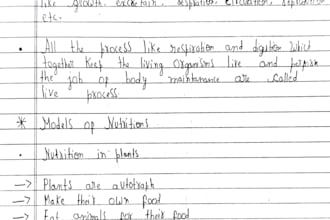 like growth, excretion, respiration, circulation, replication
etc.
• All the process like respiration and digstion which
together keep the living organisms live and perform
the job of body maintanance are called
live process.
* Models of Nutritions
• Nutrition in plants
→ Plants are autotroph
→ Make their own food
→ Eat animals for their food